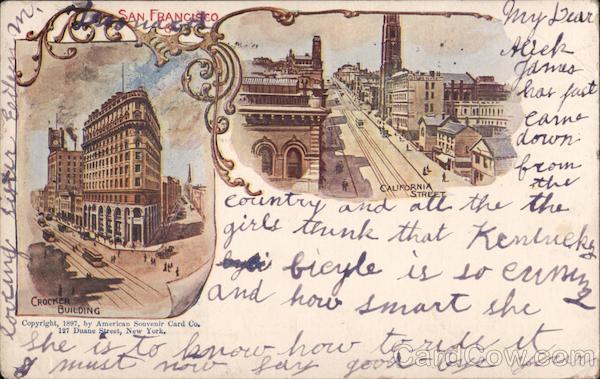 SAN FRANCISCO
My Dear
Aleck
James
has just
came
down
from
the
country and all the the
girls thunk that Kentucky
bicyle is so cunning
and how smart she
She is to know how to ride it
I must now say good bye
loving sister
CALIFORNIA STREET
CROCKER BUILDING
Copyright, 1897, by American Souvenir Card Co.
127 Duane Street, New York.
CardCow.com